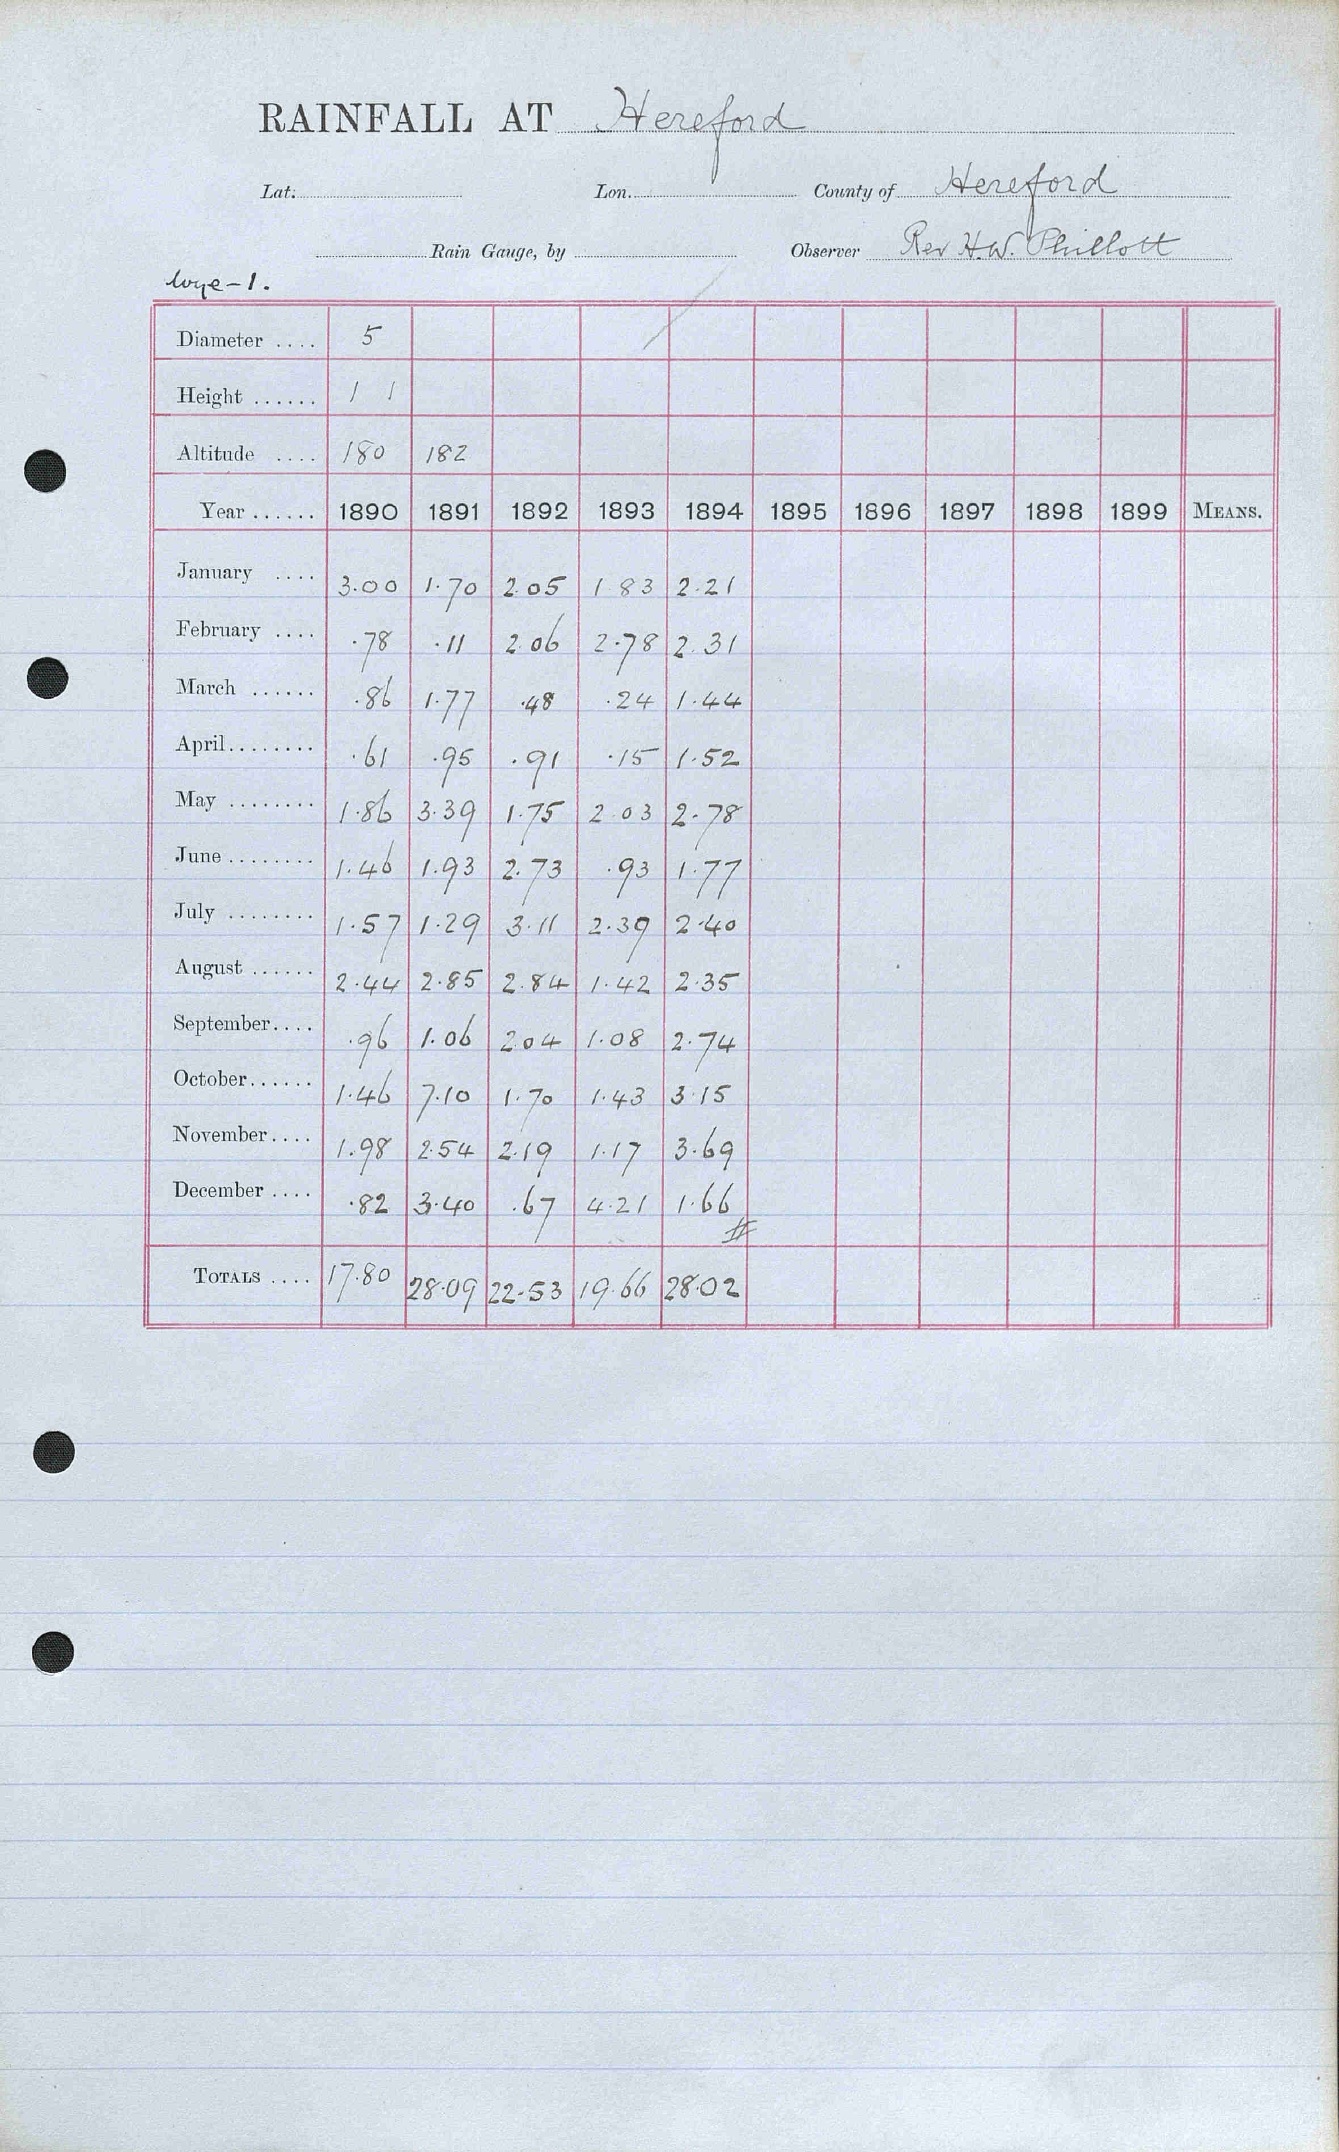 RAINFALL AT Hereford
Lat. Lon. County of Hereford
Rain Gauge, by Observer Rev H.W. Phillott
Wye-1.
Diameter .... 5
Height ...... 1 1
Altitude .... 180 182
Year ...... 1890 1891 1892 1893 1894 1895 1896 1897 1898 1899 MEANS.
January .... 3.00 1.70 2.05 1 83 2.21
February .... .78 .11 2.06 2.78 2.31
March ...... .86 1.77 .48 .24 1.44
April........ .61 .95 .91 .15 1.52
May ........ 1.86 3.39 1.75 2 03 2.78
June ........ 1.46 1.93 2.73 .93 1.77
July ........ 1.57 1.29 3.11 2.39 2.40
August ...... 2.44 2.85 2.84 1.42 2.35
September.... .96 1.06 2.04 1.08 2.74
October...... 1.46 7.10 1.70 1.43 3.15
November.... 1.98 2.54 2.19 1.17 3.69
December .... .82 3.40 .67 4.21 1.66
TOTALS .... 17.80 28.09 22.53 19.66 28.02